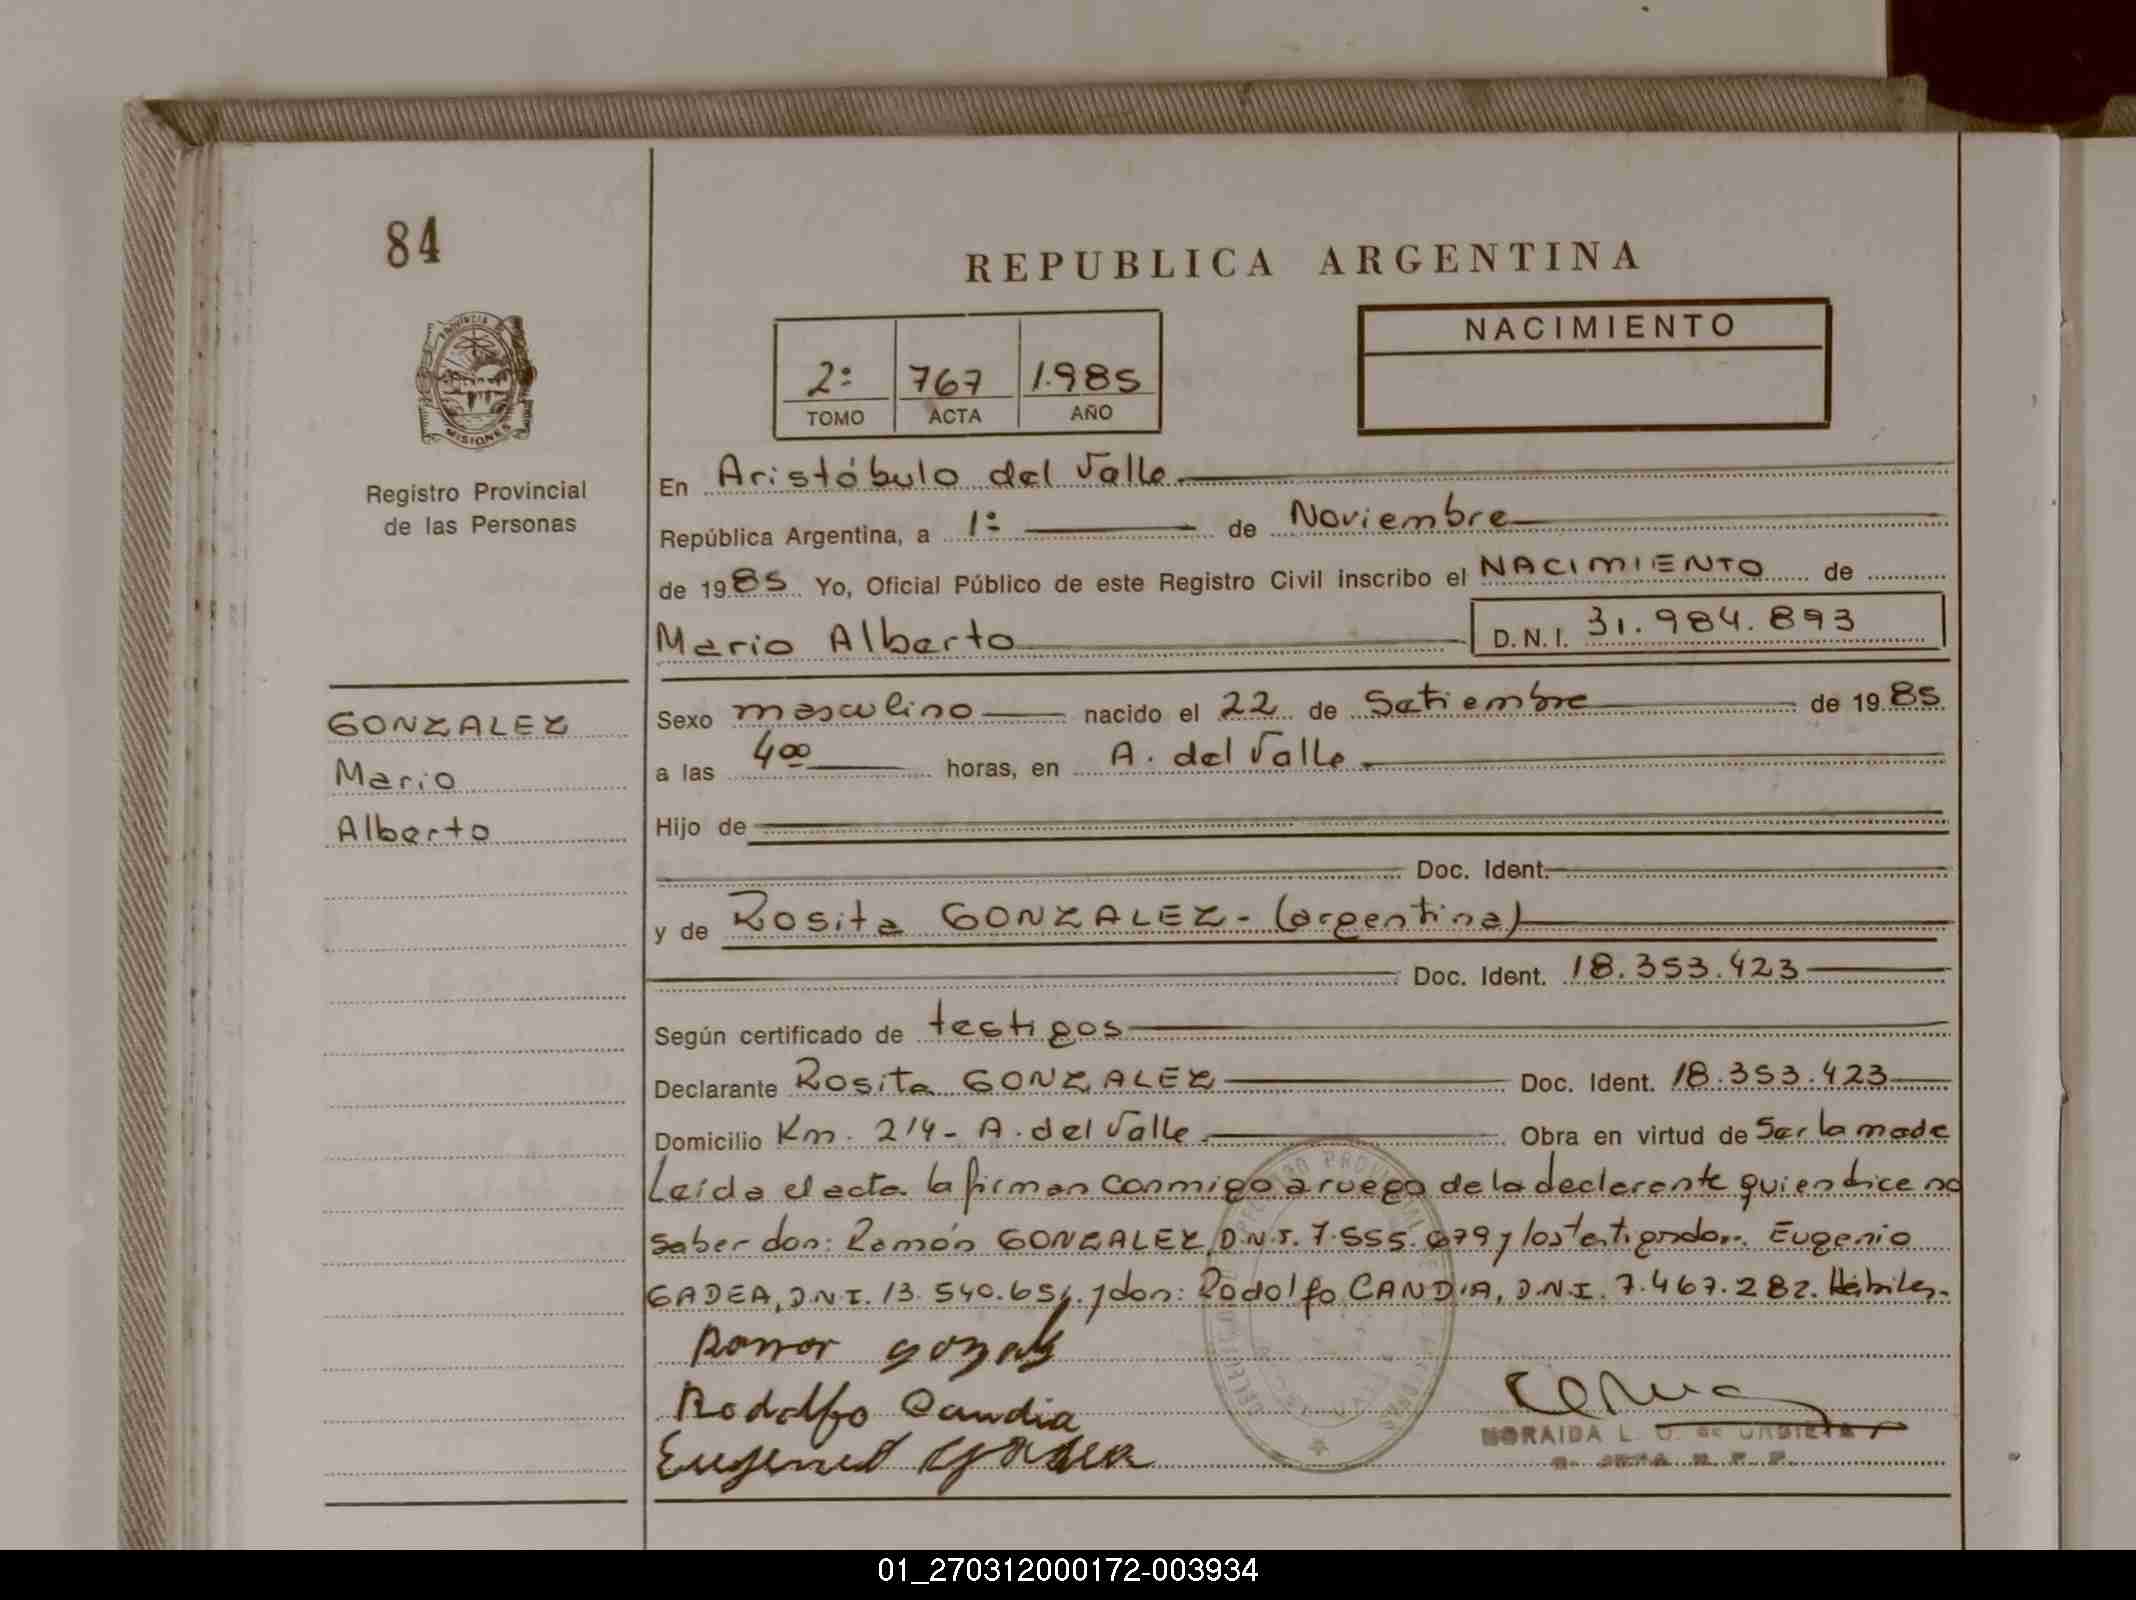 84
REPUBLICA ARGENTINA
2º 767 1.985
TOMO ACTA AÑO
NACIMIENTO
PROVINCIA DE
MISIONES
Registro Provincial
de las Personas
GONZALEZ
Mario
Alberto
En Aristóbulo del Valle
República Argentina, a 1º de Noviembre
de 1985 Yo, Oficial Público de este Registro Civil inscribo el NACIMIENTO de
Mario Alberto D.N.I. 31.984.893
Sexo masculino nacido el 22 de Setiembre de 1985
a las 4oo horas, en A. del Valle
Hijo de
Doc. Ident.
y de Rosita GONZALEZ - (argentina)
Doc. Ident. 18.353.423
Según certificado de testigos
Declarante Rosita GONZALEZ Doc. Ident. 18.353.423
Domicilio Km. 214 - A. del Valle Obra en virtud de Ser la made
Leída el acta la firman conmigo a ruego de la declarante quien dice no
saber don: Ramón GONZALEZ, D.N.I. 7.555.679 y los testigos don: Eugenio
GADEA, D.N.I. 13.540.654. y don: Rodolfo CANDIA, D.N.I. 7.467.282. Hábiles.-
Rodolfo Candia
NORAIDA L.
01_270312000172-003934